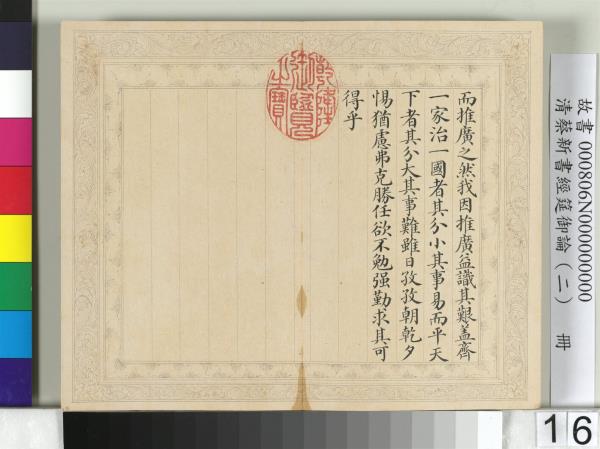 而推廣之然我因推廣益識其艱蓋齊
一家治一國者其分小其事易而平天
下者其分大其事難雖日孜孜朝乾夕
惕猶慮弗克勝任欲不勉强勤求其可
得乎
乾隆御覽之寶
故書 000806N000000000
清蔡新書經筵御論(二) 冊
16